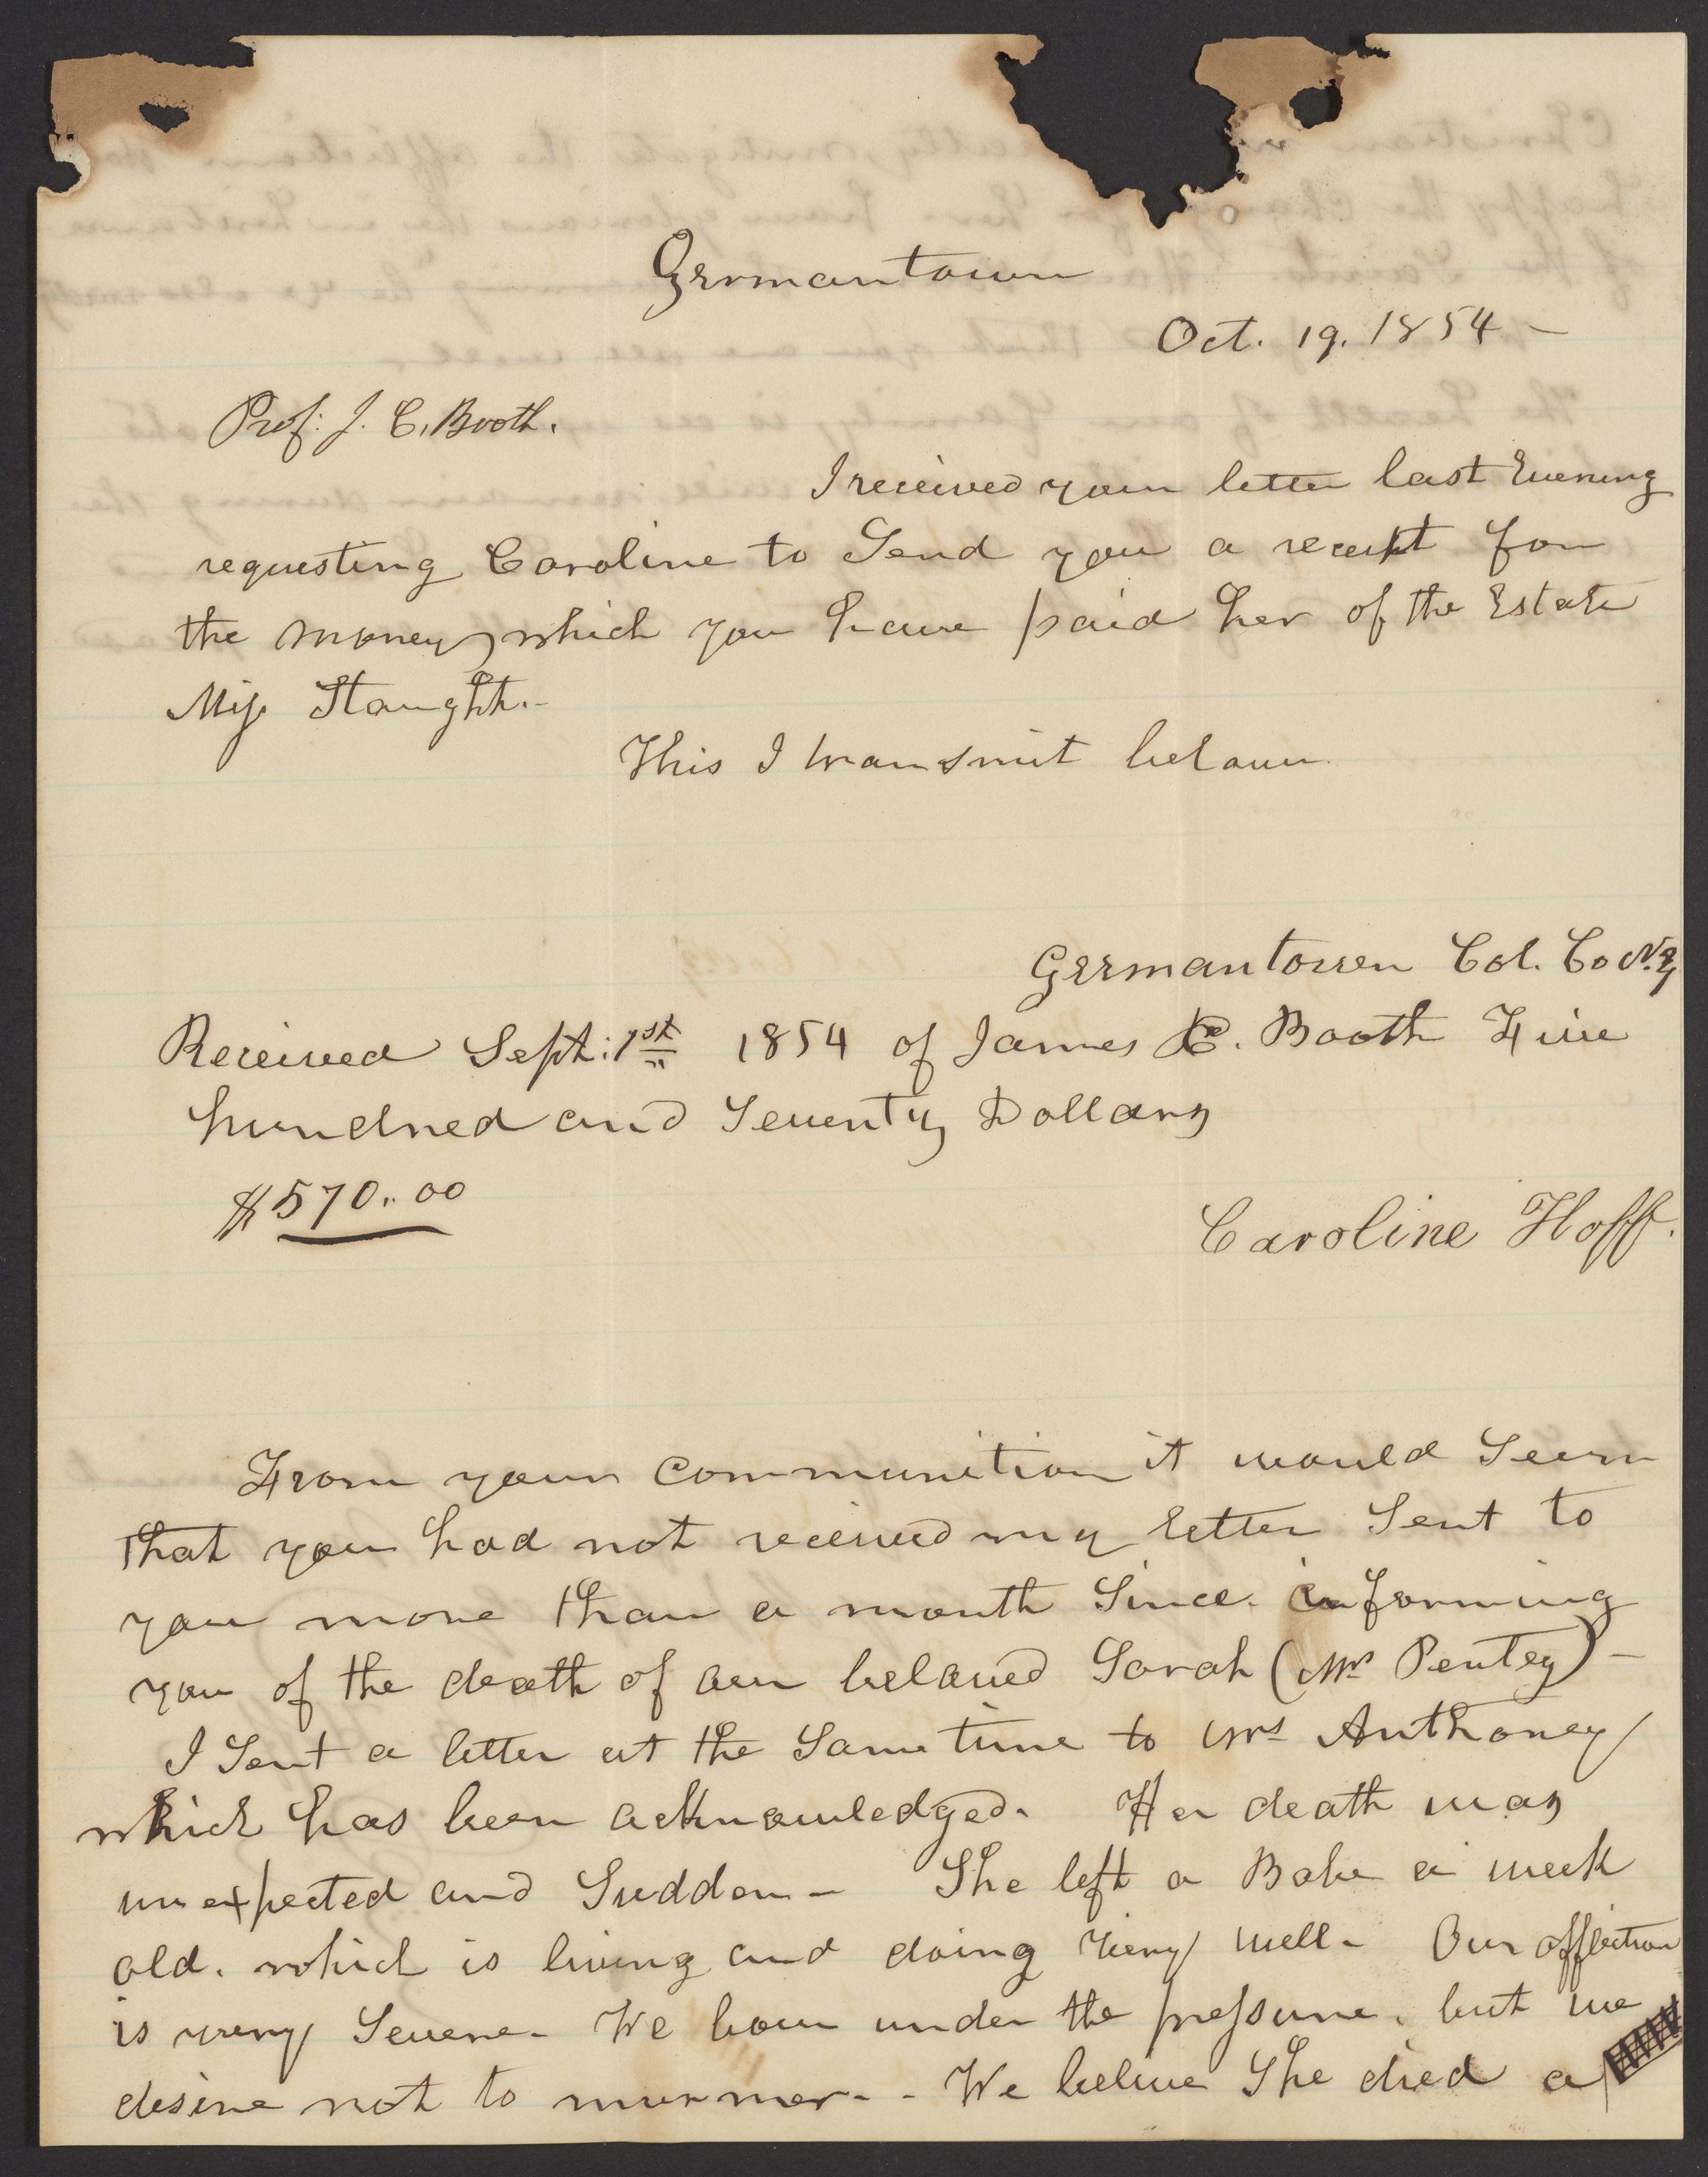 Germantown
Oct. 19. 1854 -
Prof. J. C. Booth.
I received your letter last Evening
requesting Caroline to Send you a receipt for
the money, which you have paid her of the Estate
Miss Staught.-
This I transmit below
Germantown Col. Co N.Y
Received Sept: 1st 1854 of James C. Booth Five
hundred and Seventy Dollars
$570.. 00
Caroline Hoff.
From your communition it would Seem
that you had not received my letter Sent to
you more than a month Since. informing
you of the death of our beloved Sarah (Mrs Pentey) -
I Sent a letter at the Same time to Mrs Anthoney
which has been acknowledged. Her death was
unexpected and Sudden - She left a Babe a week
old. which is living and doing very well - Our affliction
is very Severe - We bow under the pressure. but we
desire not to murmer - - We believe She died a